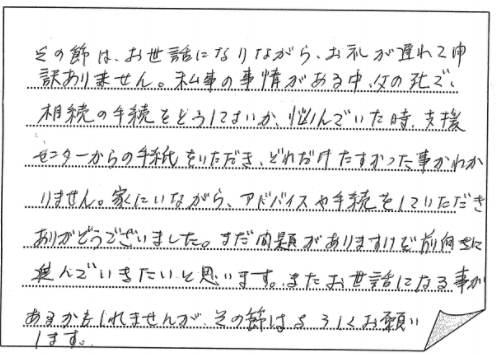 その節は、お世話になりながら、お礼が遅れて申
訳ありません。私事の事情がある中、父の死で、
相続の手続をどうしてよいか、悩んでいた時、支援
センターからの手紙をいただき、どれだけたすかった事かわか
りません。家にいながら、アドバイスや手続をしていただき
ありがとうございました。まだ問題がありますけど前向きに
進んでいきたいと思います。またお世話になる事が
あるかもしれませんが、その節はよろしくお願い
します。